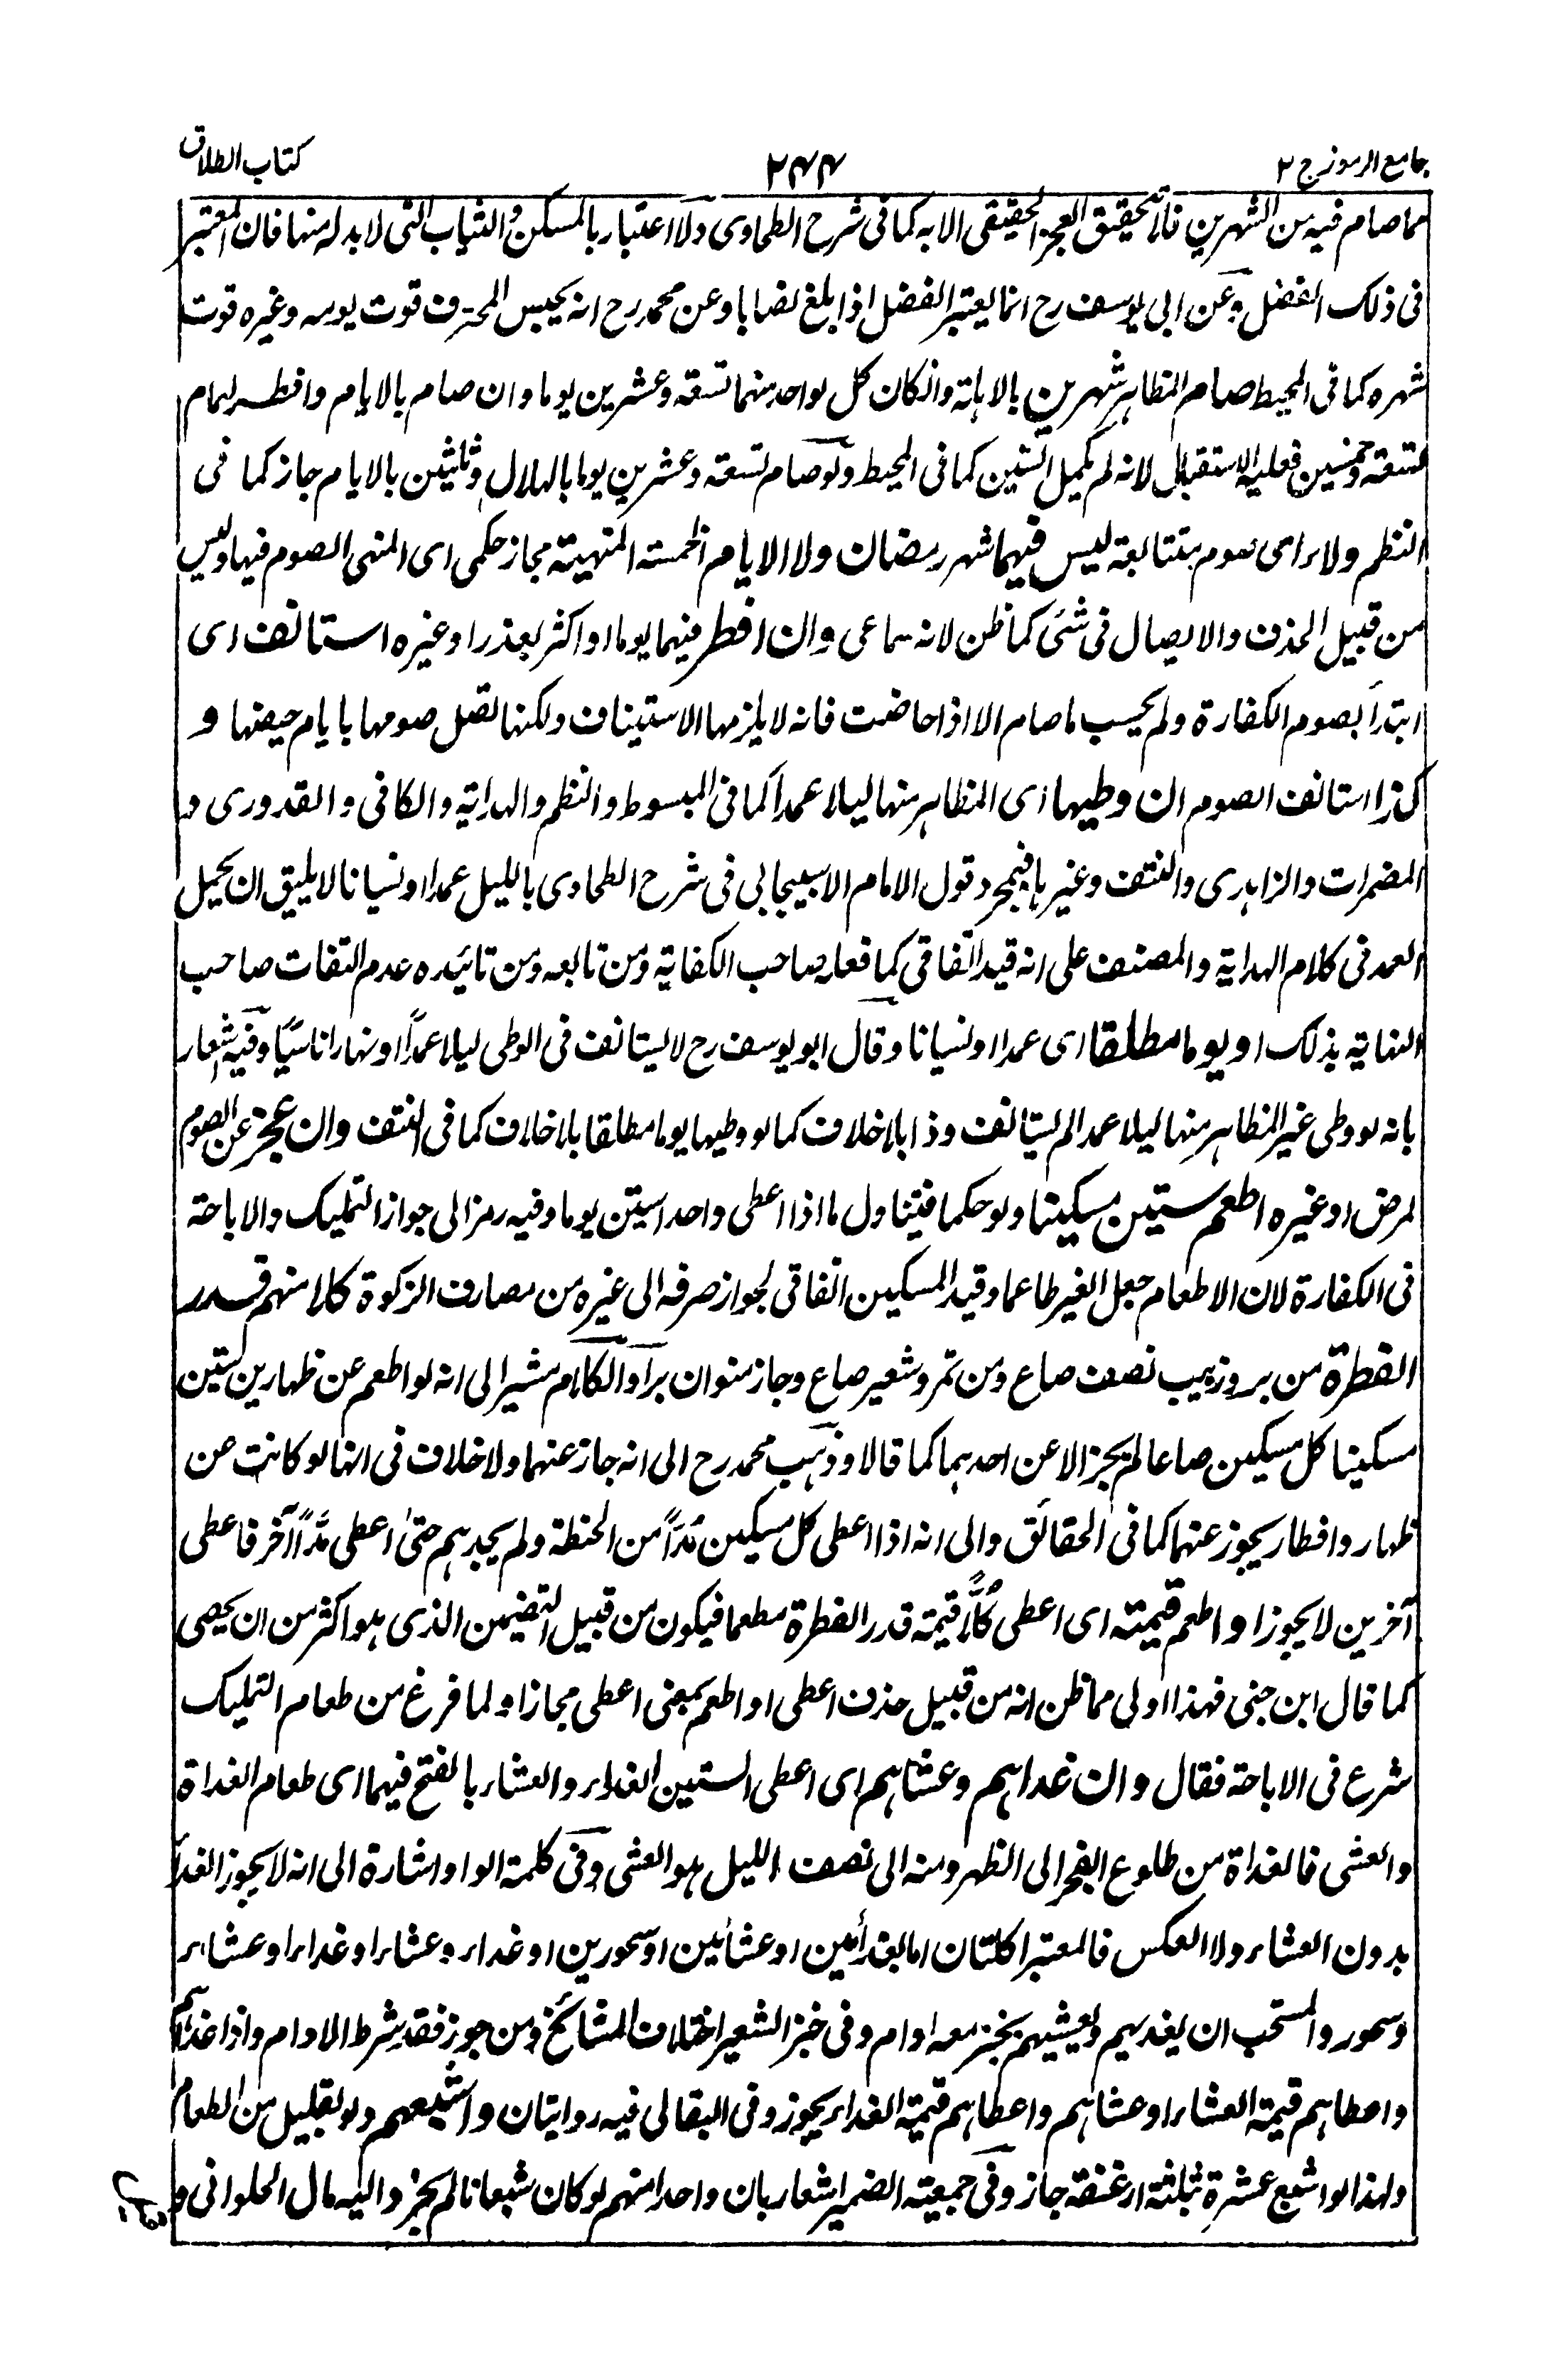 جامع الرموز ج ٢
٢٤٤
كتاب الطلاق
مما صام فيه من الشهرين فلا تحقيق العجز الحقيقى الا به كما فى شرح الطحاوى ولا اعتبار بالمسكن والثياب التى لا بد له منها فان المعتبر
فى ذلك الفضل وعن ابى يوسف رح انما يعتبر الفضل اذا بلغ نصابا وعن محمد رح انه يحبس المحترف قوت يومه وغيره قوت
شهره كما فى المحيط صام المظاهر شهرين بالاهلة وانكان كل واحد منهما تسعة وعشرين يوما وان صام بالايام وافطر لتمام
تسعة وخمسين فعليه الاستقبال لانه لم يكمل الستين كما فى المحيط ولو صام تسعة وعشرين يوما بالهلال وثلثين بالايام جاز كما فى
النظم ولاء اى صوم متتابعة ليس فيهما شهر رمضان ولا الايام الخمسة المنهية مجاز حكمى اى المنهى الصوم فيها وليس
من قبيل الحذف والايصال فى شئ كما ظن لانه سماعى وان افطر فيهما يوما او اكثر بعذر او غيره استانف اى
ابتدأ بصوم الكفارة ولم يحسب ما صام الا اذا حاضت فانه لا يلزمها الاستيناف ولكنها تصل صومها بايام حيضها و
كذا استانف الصوم ان وطيها اى المظاهر منها ليلا عمدا كما فى المبسوط والنظم والهداية والكافى والقدورى و
المضمرات والزاهدى والنتف وغيرها فبمجرد قول الامام الاسبيجابى فى شرح الطحاوى بالليل عمدا او نسيانا لا يليق ان يحمل
العمد فى كلام الهداية والمصنف على انه قيد اتفاقى كما فعله صاحب الكفاية ومن تابعه ومن تائيده عدم التفات صاحب
النهاية بذلك او يوما مطلقا اى عمدا او نسيانا وقال ابو يوسف رح لا يستانف فى الوطى ليلا عمدا او نهارا ناسيًا وفيه اشعار
بانه لو وطى غير المظاهر منها ليلا عمدا لم يستانف وذا بلا خلاف كما لو وطيها يوما مطلقا بلا خلاف كما فى النتف وان عجز عن الصوم
لمرض او غيره اطعم ستين مسكينا ولو حكما فيتناول ما اذا اعطى واحدا ستين يوما وفيه رمز الى جواز التمليك والاباحة
فى الكفارة لان الاطعام جعل الغير طاعما وقيد المسكين اتفاقى لجواز صرفه الى غيره من مصارف الزكوة كلا منهم قدر
الفطرة من بر وزبيب نصف صاع ومن تمر وشعير صاع وجاز منوان برا والكلام مشير الى انه لو اطعم عن ظهارين ستين
مسكينا كل مسكين صاعا لم يجز الا عن احدهما كما قالا وذهب محمد رح الى انه جاز عنهما ولا خلاف فى انها لو كانت عن
ظهار وافطار يجوز عنهما كما فى الحقائق والى انه اذا اعطى كل مسكين مُدًّا من الحنطة ولم يجدهم حتى اعطى مدًّا آخر فاعطى
آخرين لا يجوز او اطعم قيمته اى اعطى كلًّا قيمة قدر الفطرة مطعما فيكون من قبيل التضمين الذى هو اكثر من ان يحصى
كما قال ابن جنى فهذا اولى مما ظن انه من قبيل حذف اعطى او اطعم بمعنى اعطى مجازا ولما فرغ من طعام التمليك
شرع فى الاباحة فقال وان غداهم وعشاهم اى اعطى الستين الغداء والعشاء بالفتح فيهما اى طعام الغداة
والعشى فالغداة من طلوع الفجر الى الظهر ومنه الى نصف الليل هو العشى وفى كلمة الواو اشارة الى انه لا يجوز الغداء
بدون العشاء ولا العكس فالمعتبر اكلتان اما بغدائين او عشائين او سحورين او غداء وعشاء او غداء او عشاء
وسحور والمستحب ان يغديهم ويعشيهم بخبز معه ادام وفى خبز الشعير اختلاف المشائخ ومن جوز فقد شرط الادام واذا غداهم
واعطاهم قيمة العشاء او عشاهم واعطاهم قيمة الغداء يجوز وفى البقالى فيه روايتان واشبعهم ولو بقليل من الطعام
ولهذا لو اشبع عشرة بثلثة ارغفة جاز وفى جمعية الضمير اشعار بان واحدا منهم لو كان شبعانا لم يجز واليه مال الحلوانى و